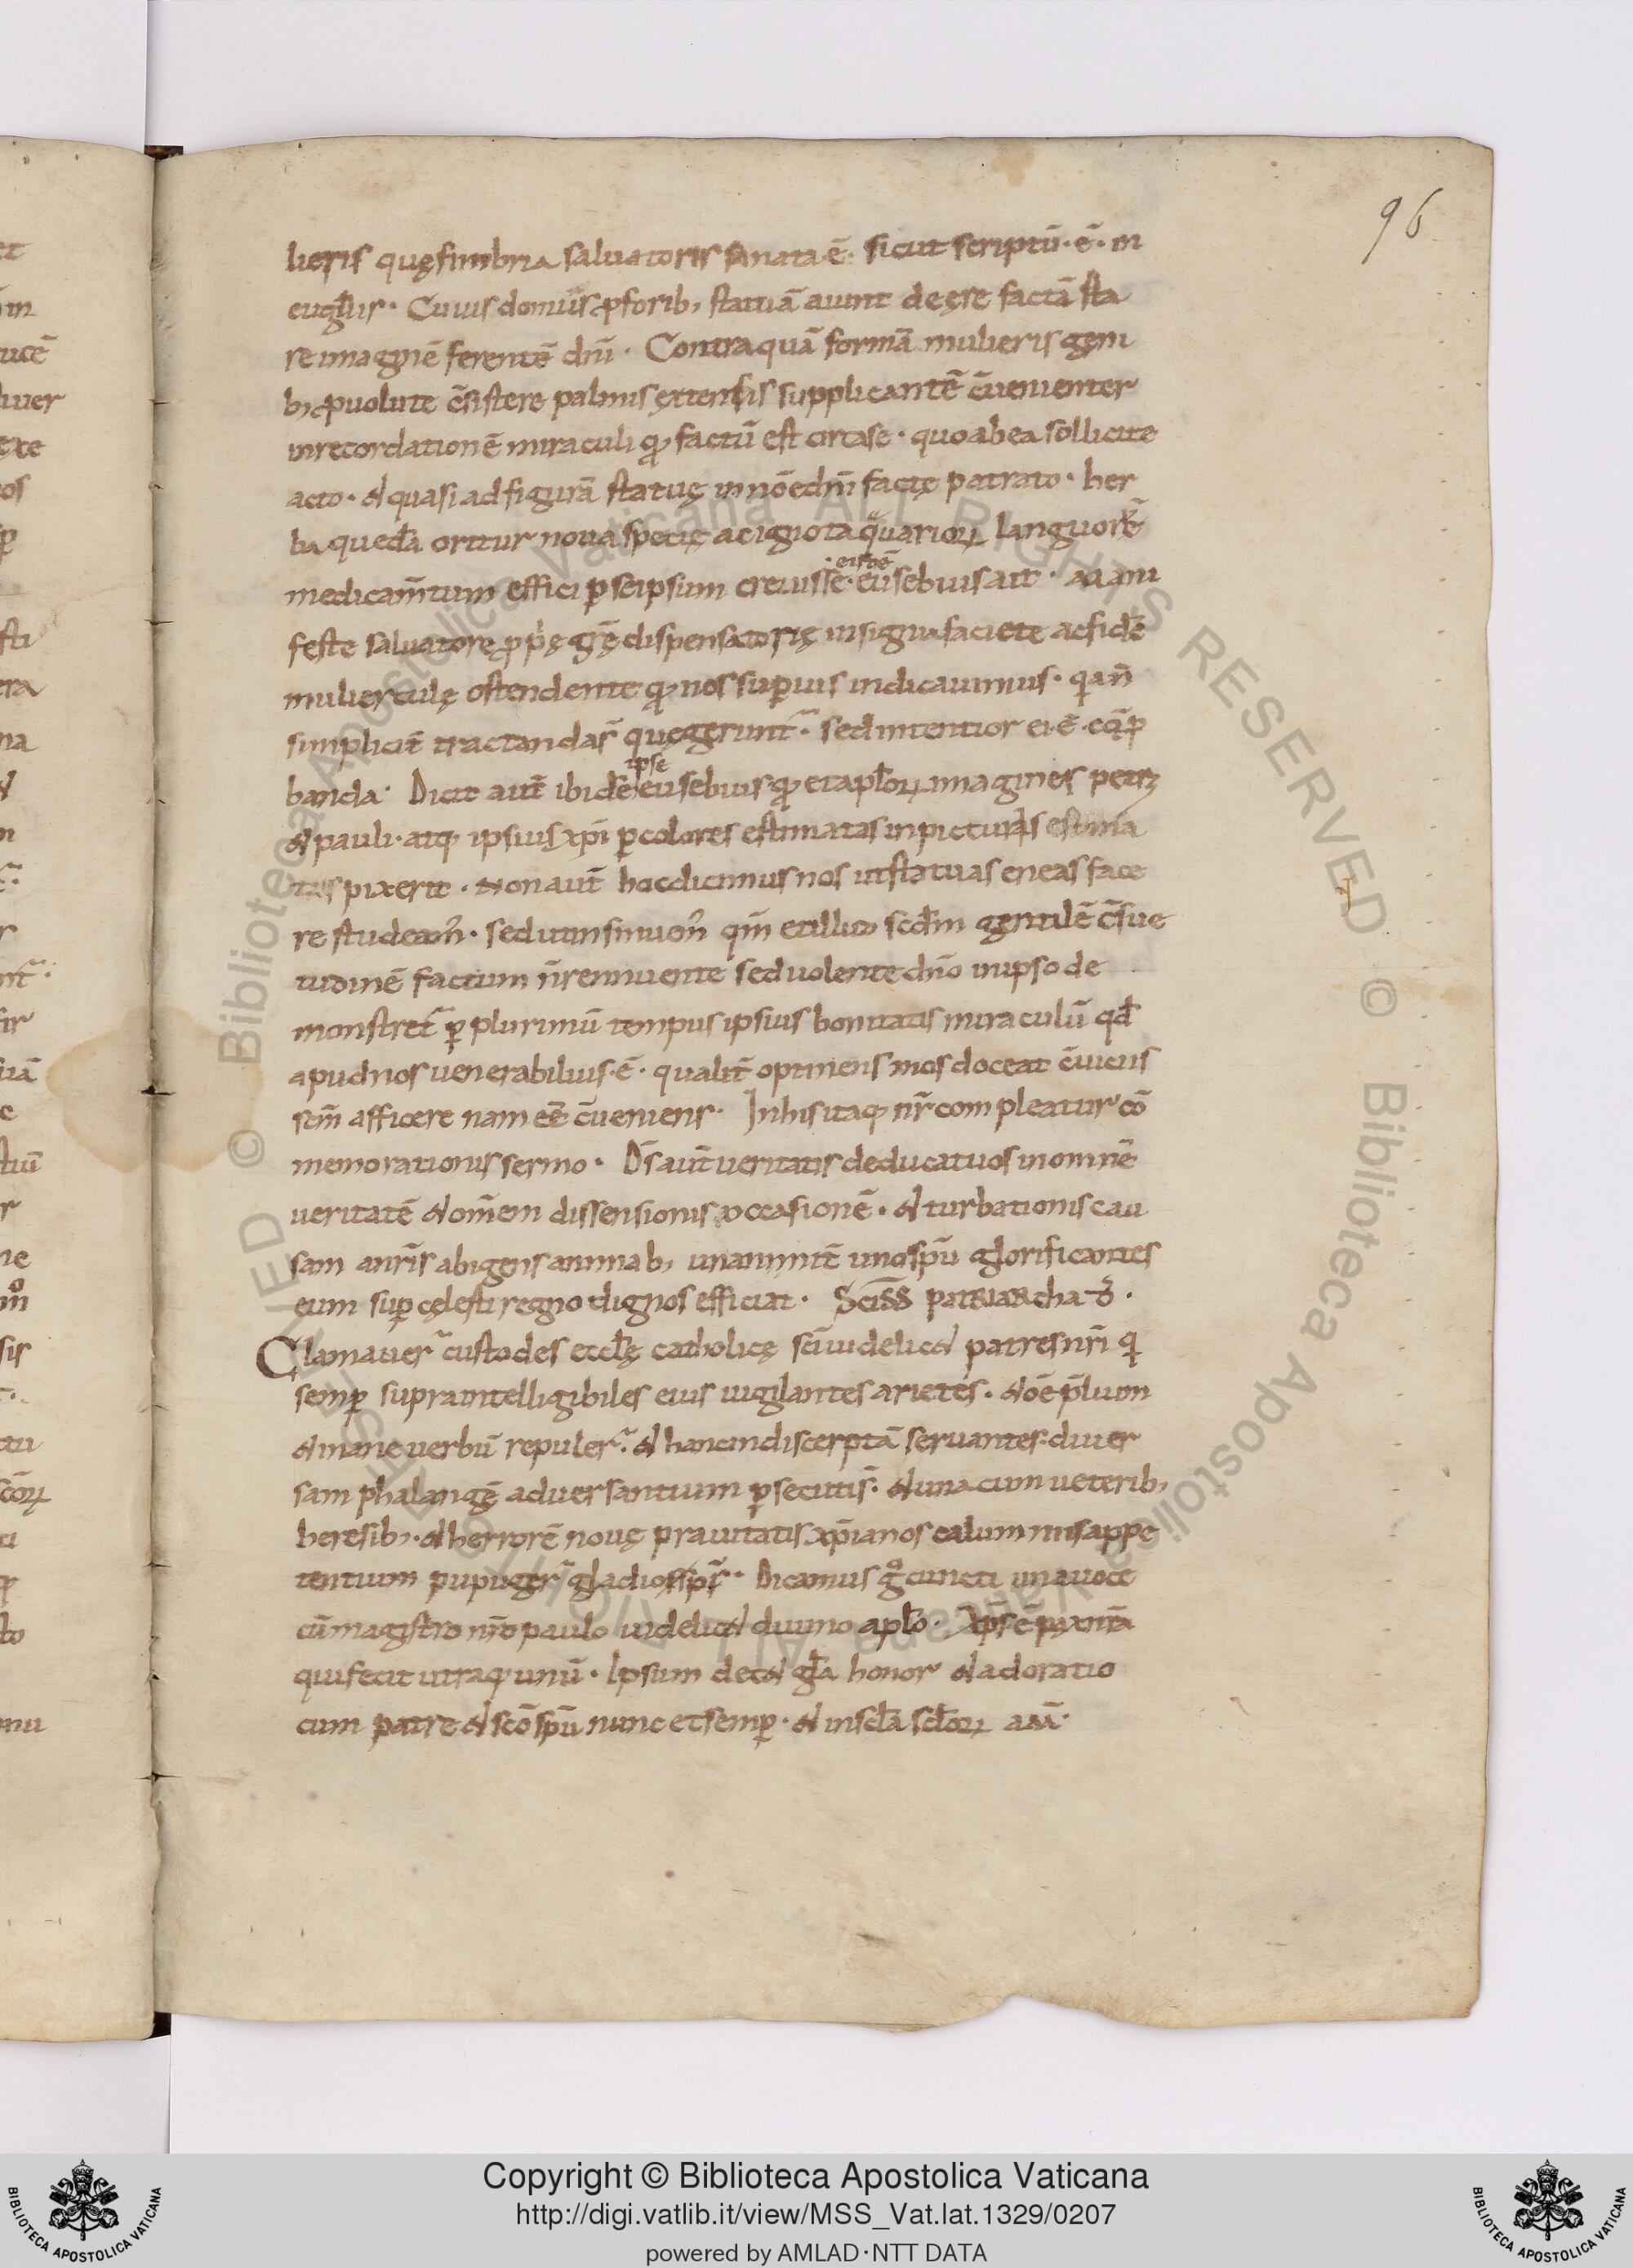 96
lieris quę fimbria saluatoris sanata ē. sicut scriptū. ē. in
euḡliis. Cuius domus p̄ foribꝫ statuā aiunt de ęre factā sta
re imaginē ferentē dn̄i. Contra quā formā mulieris geni
bꝫ puolute c̄sistere palmis extensis supplicantē c̄uenienter
in recordationē miraculi qđ factū est circa se. quo ab ea sollicite
acto. & quasi ad figurā statuę in nōe dn̄i factę patrato. her
ba quedā oritur noua specię ac ignota uarioꝝ languorē
medicam̄tum effici ꝑ seipsum creuisse. eusebius ait. Mani
feste saluatore ꝓp̄ę gr̄ę dispensatorię insignia faciete ac fidē
mulierculę ostendente qđ nos superius indicauimus. qđ n̄
simplicit̄ tractandaȓ quę gerunt̄. sed intentior ei. ē. cōꝓ
banda. Dicit aut̄ ibidē
ipse
eusebius qđ et apl̄oꝝ imagines petri
& pauli. atqꝫ ipsius xp̄i ꝑ colores estimatas in picturis
pixerit. Non aut̄ hoc dicimus nos ut statuas eneas face
re studeam̄. sed ut insinuem̄ qm̄ et illud scd̄m gentilē c̄sue
tudinē factum n̄ rennuente sed uolente dn̄o in ipso de
monstret̄ ꝑ plurimū tempus ipsius bonitatis miraculū qđ
apud nos uenerabilius. ē. qualit̄ optinens mos doceat
afficere nam eē c̄ueniens. In his itaqꝫ nr̄ compleatur cō
memorationis sermo. Ds̄ aut̄ ueritatis deducat uos in omnē
ueritatē & om̄em dissensionis occasionē. & turbationis cau
sam a nr̄is abigens animabꝫ unanimit̄ uno sp̄u glorificantes
eum suꝑ cęlesti regno dignos efficiat. Scīss patriarcha đ.
Clamauer̄ custodes eccl̄ę catholicę sci uidelic& patres nr̄i qi
semꝑ supra intelligibiles eius uigilantes arietes. & oē p̄lium
& inane uerbū repuler̄. & hanc indiscerptā seruantes. diuer
sam phalangē aduersantium ꝑsecuti s̄. & una cum ueteribꝫ
heresibꝫ. & herrorē nouę prauitatis xp̄ianos calumniis appe
tentium pupuger̄ gladio sp̄s. Dicamus g̊ cuncti una uoce
cū magistro nr̄o paulo uidelic& diuino apl̄o. xp̄s ē pax nr̄a
qui fecit utraqꝫ unū. Ipsum dec& gl̄a honor & adoratio
cum patre & scō sp̄u nunc et semꝑ. & in scl̄a scl̄oꝝ am̄.
Copyright © Biblioteca Apostolica Vaticana
http://digi.vatlib.it/view/MSS_Vat.lat.1329/0207
powered by AMLAD·NTT DATA
BIBLIOTECA APOSTOLICA VATICANA
BIBLIOTECA APOSTOLICA VATICANA